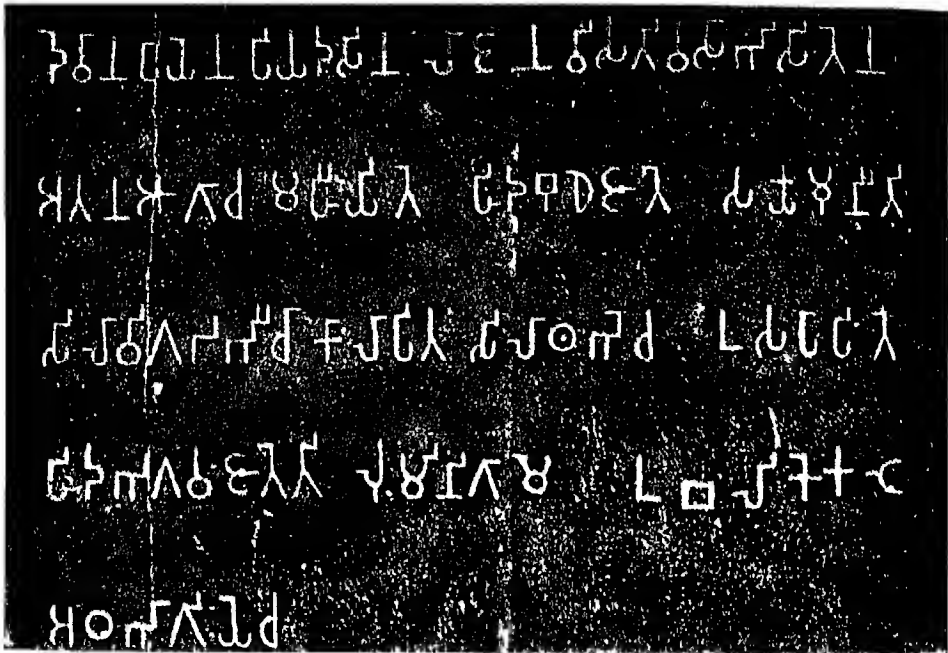 𑀤𑁂𑀯𑀸𑀦𑀧𑀺𑀬𑁂𑀦𑀧𑀺𑀬𑀤𑀲𑀺𑀦 𑀮𑀸𑀚𑀺𑀦𑀯𑀻𑀲𑀢𑀺𑀯𑀲𑀸𑀪𑀺𑀲𑀺𑀢𑁂𑀦
𑀅𑀢𑀦𑀆𑀕𑀸𑀘 𑀫𑀳𑀻𑀬𑀺𑀢𑁂 𑀳𑀺𑀤𑀩𑀼𑀥𑁂𑀚𑀸𑀢𑁂 𑀲𑀓𑁆𑀬𑀫𑀼𑀦𑀻𑀢𑀺
𑀲𑀺𑀮𑀸𑀯𑀺𑀕𑀥𑀪𑀻𑀘𑀸𑀓𑀸𑀮𑀸𑀧𑀺𑀢 𑀲𑀺𑀮𑀸𑀣𑀪𑁂𑀘 𑀉𑀲𑀧𑀸𑀧𑀺𑀢𑁂
𑀳𑀺𑀤𑀪𑀕𑀯𑀁𑀚𑀸𑀢𑁂𑀢𑀺 𑀮𑀼𑀁𑀫𑀺𑀦𑀺𑀕𑀸𑀫𑁂 𑀉𑀩𑀮𑀺𑀓𑁂𑀓𑀝𑁂
𑀅𑀞𑀪𑀸𑀕𑀺𑀬𑁂𑀘